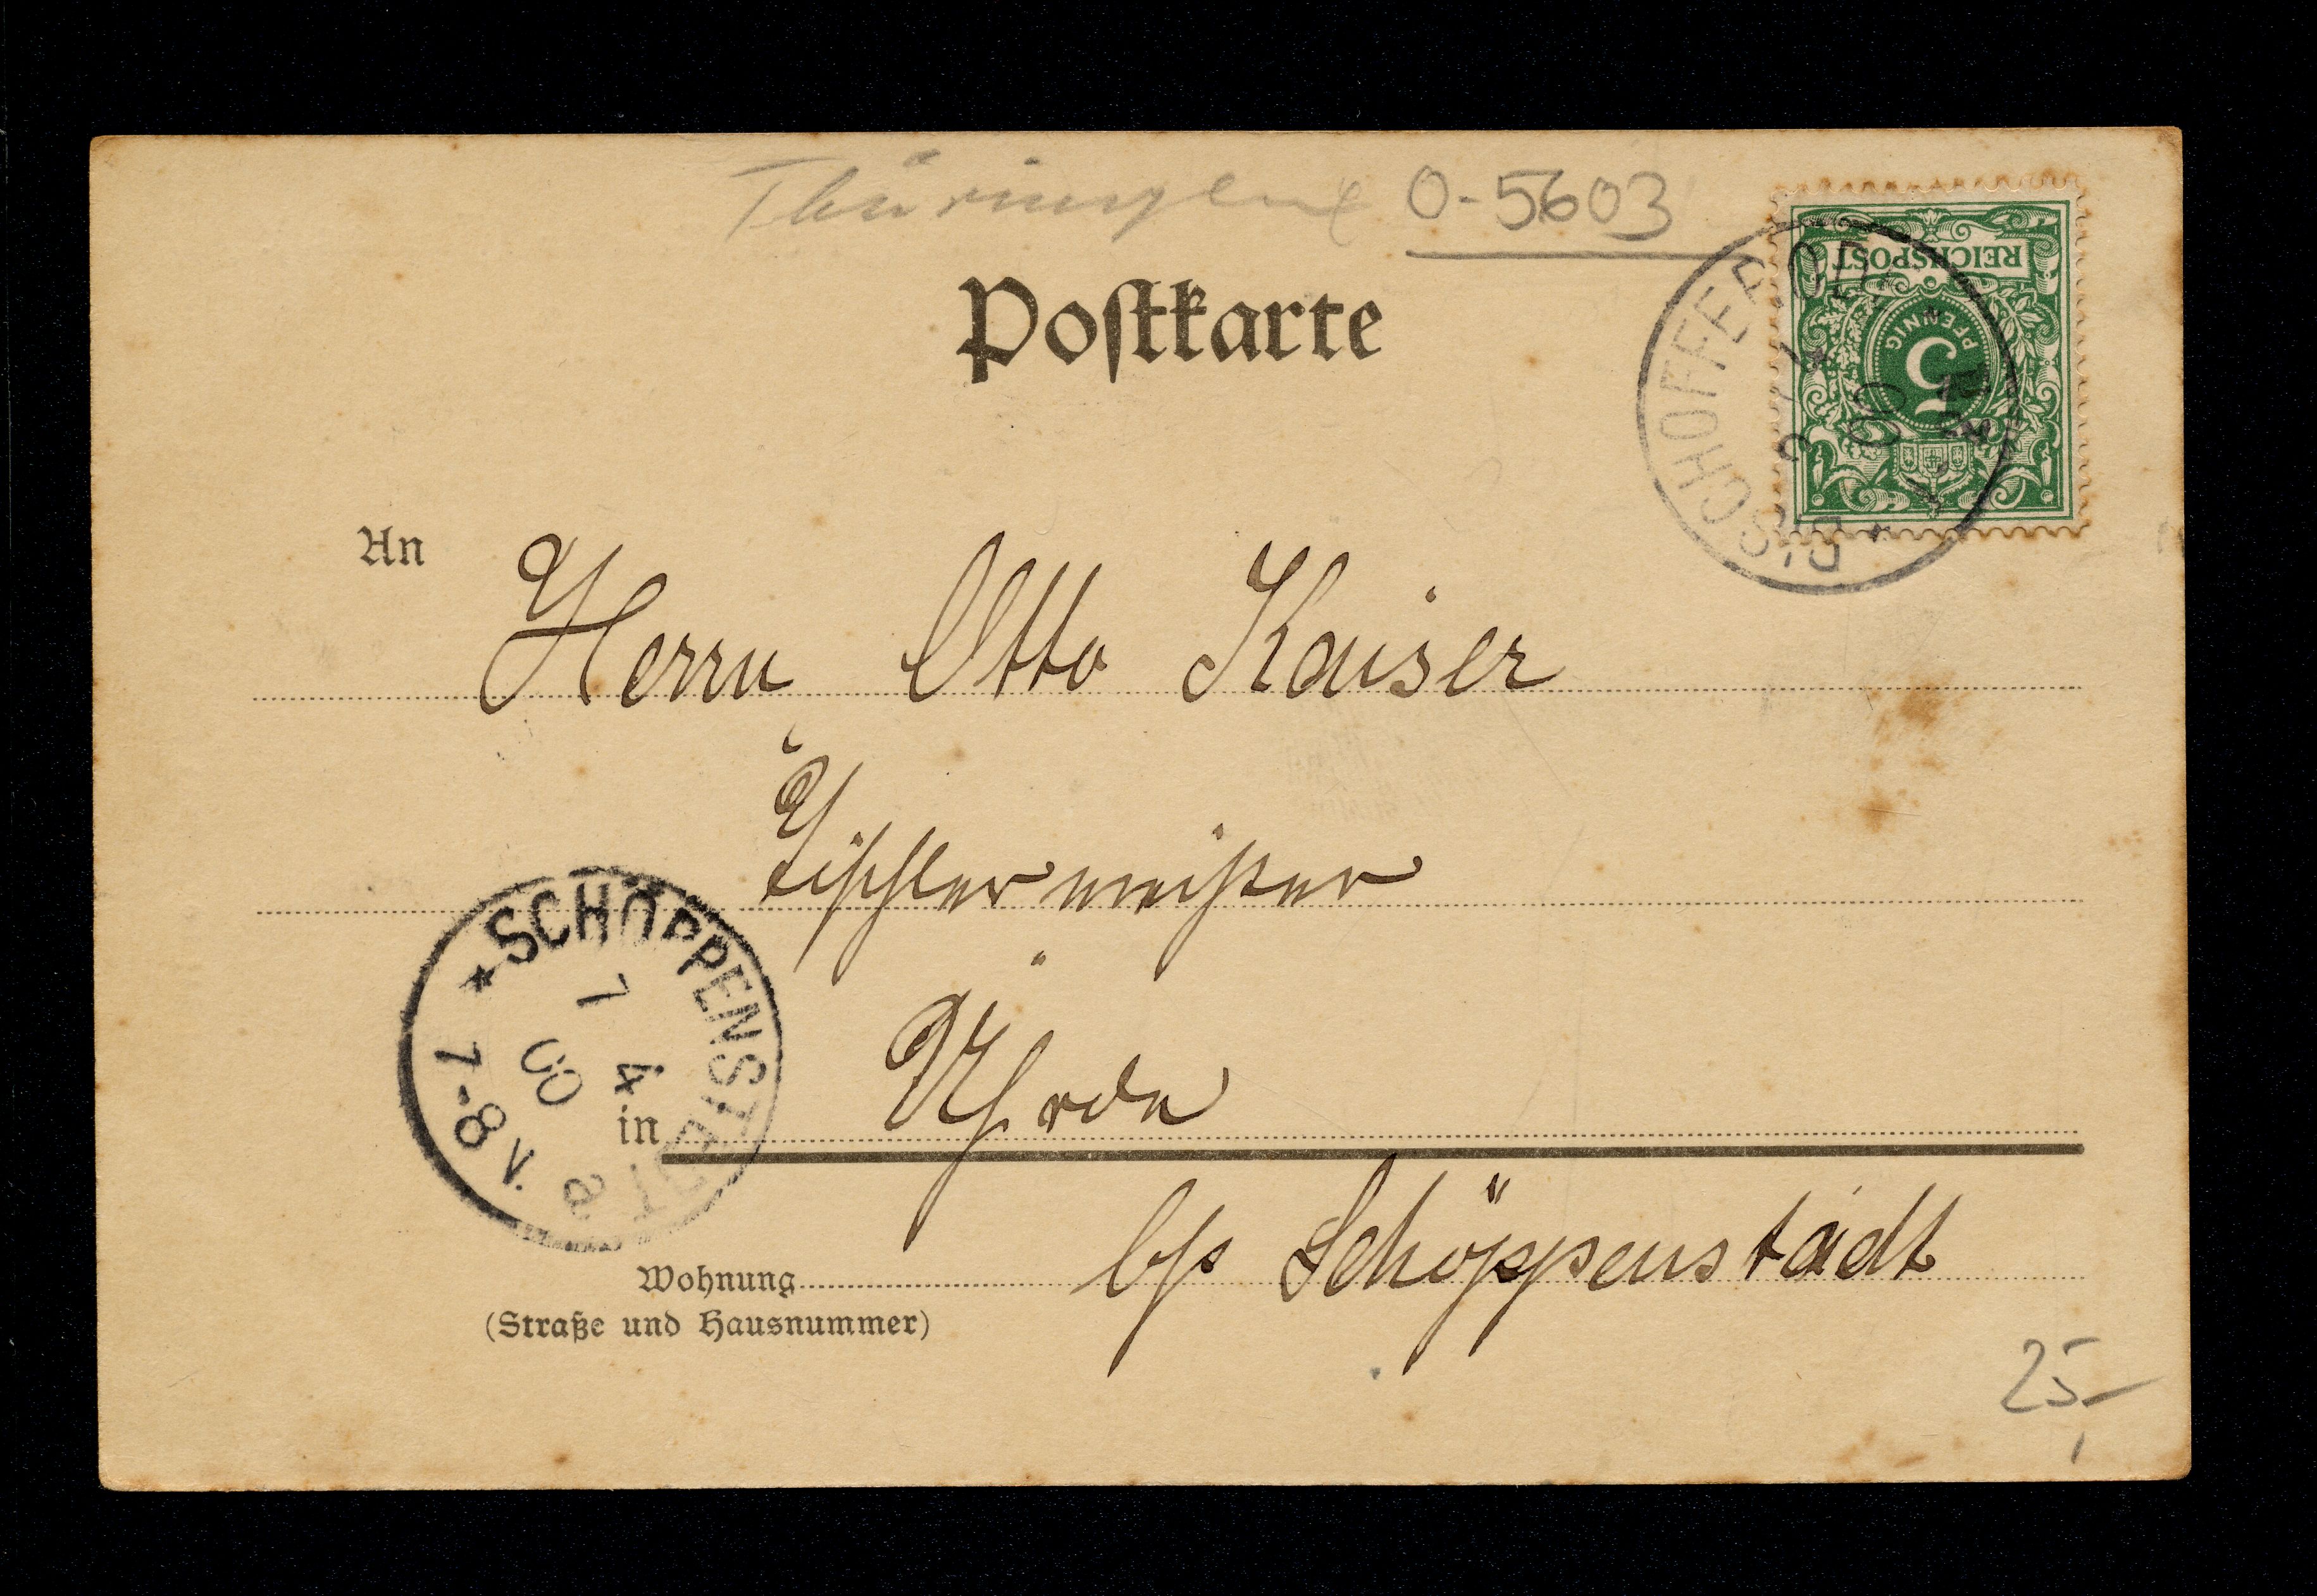 Thüringen 0-5603
Postkarte
REICHSPOST
5
PFENNIG
BISCHOFFERODE
2/4
00
An Herrn Otto Kaiser
Tischlermeister
in Uhrde
Wohnung b/s Schöppenstädt
(Straße und Hausnummer)
* SCHÖPPENSTEDT a
7 4
00
7-8 V.
25,-